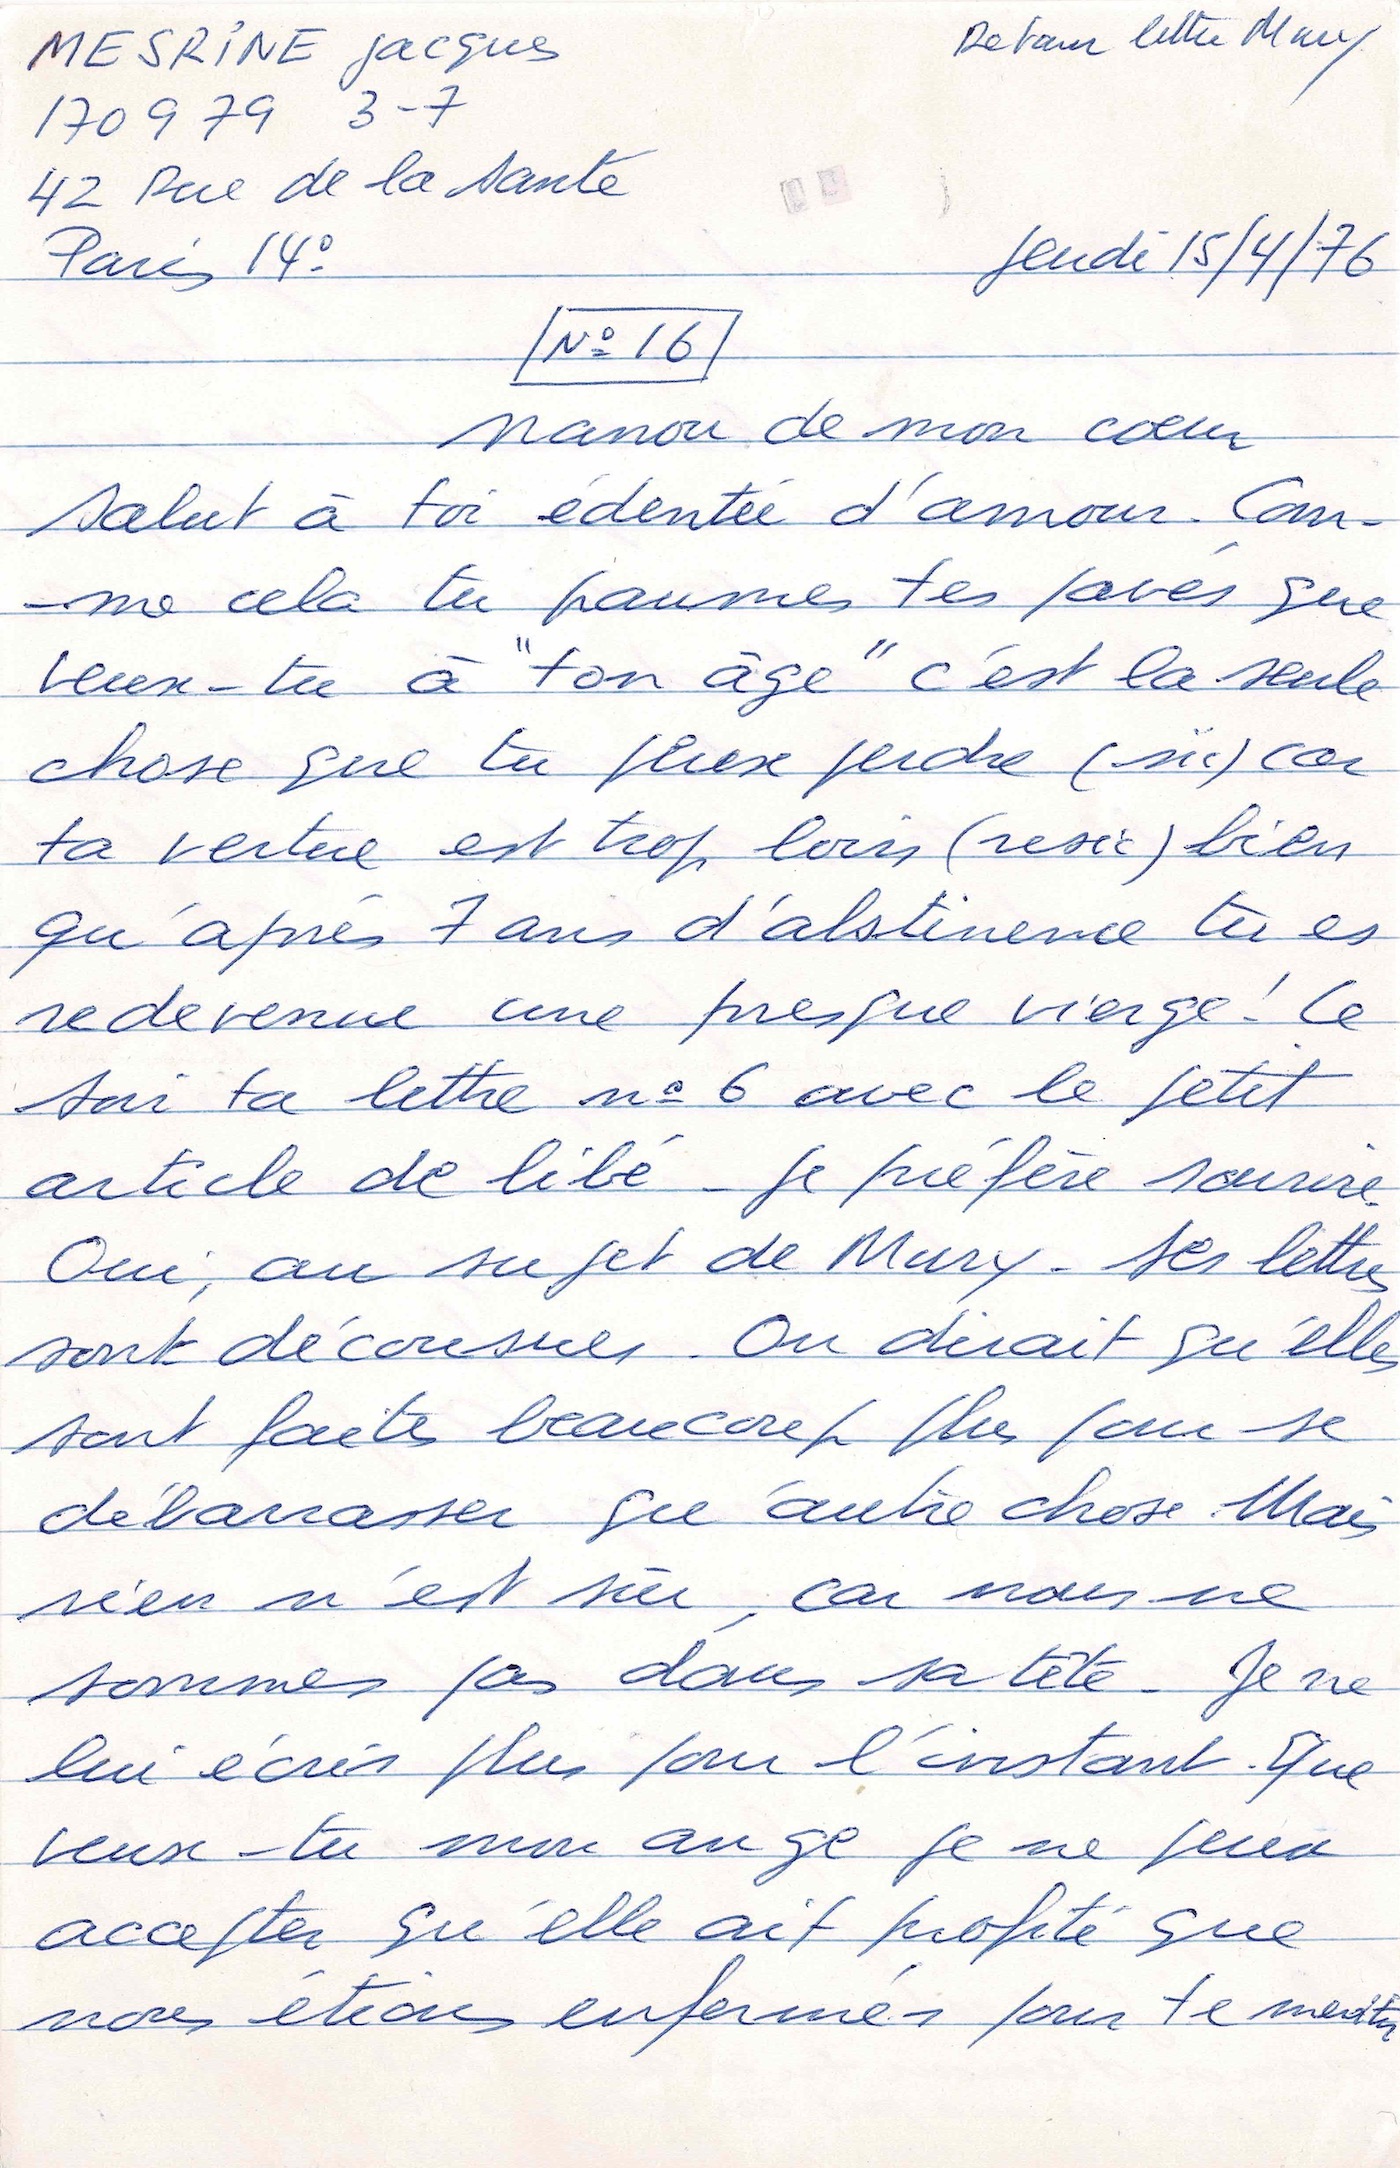 MESRINE Jacques
Retour lettre Mury
170979 3-7
42 Rue de la Santé
Paris 14°
Jeudi 15/4/76
N° 16
Nanou de mon cœur
Salut à toi édentée d'amour. Com-
-me cela tu paumes tes pavés que
veux-tu à "ton âge" c'est la seule
chose que tu peux perdre (sic) car
ta vertue est trop loin (resic) bien
qu'après 7 ans d'abstinence tu es
redevenue une presque vierge! Ce
soir ta lettre n° 6 avec le petit
article de libé - Je préfère sourire.
Oui, au sujet de Mury - ses lettres
sont décousues. On dirait qu'elles
sont faites beaucoup plus pour se
débarrasser qu'autre chose. Mais
rien n'est sûr, car nous ne
sommes pas dans sa tête - Je ne
lui écris plus pour l'instant. Que
veux-tu mon ange je ne peux
accepter qu'elle ait profité que
nous étions enfermés pour te mentir